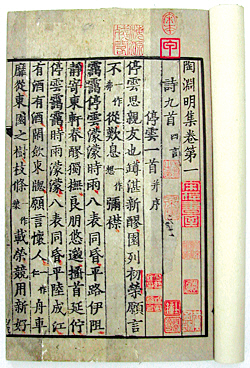 陶淵明集卷第一
詩九首 四言
停雲一首 并序
停雲思親友也罇湛新醪園列初榮願言
不一作從歎息想一作彌襟
靄靄停雲濛濛時雨八表同昏平路伊阻
靜寄東軒春醪獨撫良朋悠邈搔首延佇
停雲靄靄時雨濛濛八表同昏平陸成江
有酒有酒閒飲東牕願言懷人一作仁舟車
靡從東園之樹枝條一作榮載榮競用新好